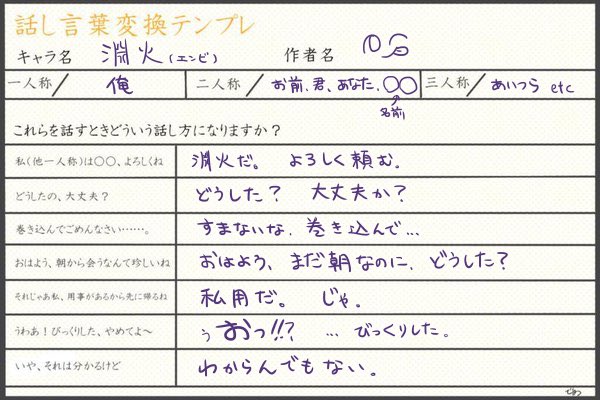 話し言葉変換テンプレ
キャラ名 淵火(エンビ) 作者名
一人称 俺 二人称 お前、君、あなた、○○ 三人称 あいつら etc
↑
名前
これらを話すときどういう話し方になりますか？
私(他一人称)は○○、よろしくね 淵火だ。 よろしく頼む。
どうしたの、大丈夫？ どうした？ 大丈夫か？
巻き込んでごめんなさい……。 すまないな、巻き込んで…
おはよう、朝から会うなんて珍しいね おはよう、まだ朝なのに、どうした？
それじゃあ私、用事があるから先に帰るね 私用だ。 じゃ。
うわあ！びっくりした、やめてよ～ ぅおっ!!? … びっくりした。
いや、それは分かるけど わからんでもない。